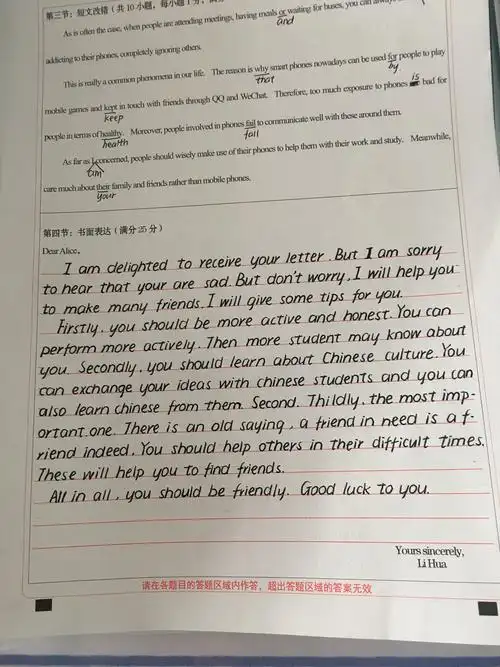 第三节：短文改错（共10小题，每小题1分，
As is often the case, when people are attending meetings, having meals or waiting for buses, you can always
and
addicting to their phones, completely ignoring others.
This is really a common phenomena in our life. The reason is why smart phones nowadays can be used for people to play
that by
mobile games and kept in touch with friends through QQ and WeChat. Therefore, too much exposure to phones is bad for
keep
people in terms of healthy. Moreover, people involved in phones fail to communicate well with these around them.
health fall
As far as I concerned, people should wisely make use of their phones to help them with their work and study. Meanwhile,
am
care much about their family and friends rather than mobile phones.
your
第四节：书面表达（满分25分）
Dear Alice,
I am delighted to receive your letter. But I am sorry
to hear that your are sad. But don't worry, I will help you
to make many friends. I will give some tips for you.
Firstly, you should be more active and honest. You can
perform more actively. Then more student may know about
you. Secondly, you should learn about Chinese culture. You
can exchange your ideas with chinese students and you can
also learn chinese from them. Second. Thildly, the most imp-
ortant one. There is an old saying, a friend in need is a f-
riend indeed. You should help others in their difficult times.
These will help you to find friends.
All in all, you should be friendly. Good luck to you.
Yours sincerely,
Li Hua
请在各题目的答题区域内作答，超出答题区域的答案无效